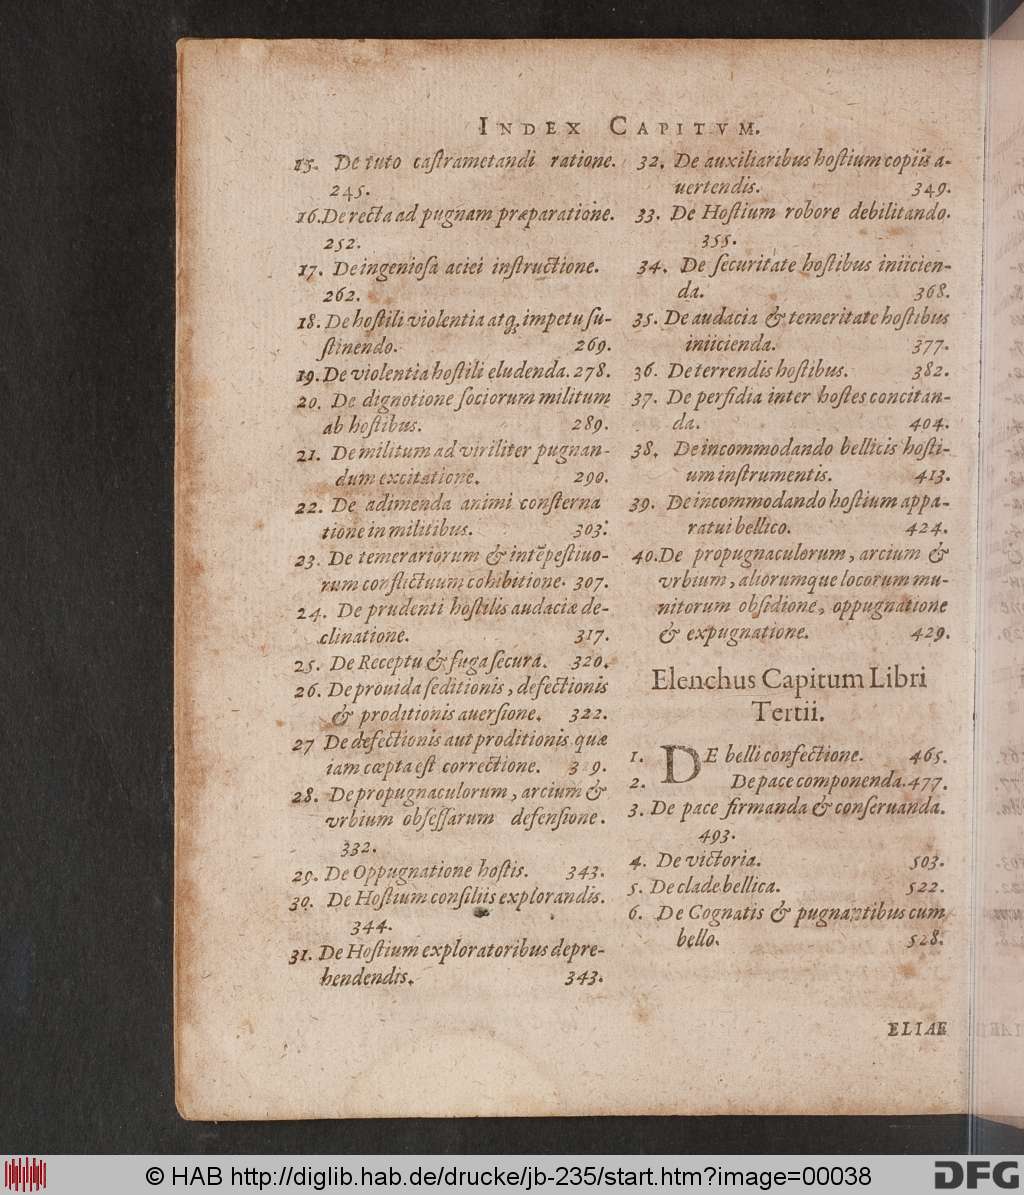 INDEX CAPITVM.
15. De tuto castrametandi ratione.
245.
16. De recta ad pugnam præparatione.
252.
17. De ingeniosa aciei instructione.
262.
18. De hostili violentia atq; impetu su-
stinendo. 269.
19. De violentia hostili eludenda. 278.
20. De dignotione sociorum militum
ab hostibus. 289.
21. De militum ad viriliter pugnan-
dum excitatione. 290.
22. De adimenda animi consterna
tione in militibus. 303.
23. De temerariorum & intēpestiuo-
rum conflictuum cohibitione. 307.
24. De prudenti hostilis audaciæ de-
clinatione. 317.
25. De Receptu & fuga secura. 320.
26. De prouida seditionis, defectionis
& proditionis auersione. 322.
27 De defectionis aut proditionis quæ
iam cœpta est correctione. 3 9.
28. De propugnaculorum, arcium &
vrbium obsessarum defensione.
332.
29. De Oppugnatione hostis. 343.
30. De Hostium consiliis explorandis.
344.
31. De Hostium exploratoribus depre-
hendendis. 343.
32. De auxiliaribus hostium copiis a-
uertendis. 349.
33. De Hostium robore debilitando.
355.
34. De securitate hostibus iniicien-
da. 368.
35. De audacia & temeritate hostibus
iniicienda. 377.
36. De terrendis hostibus. 382.
37. De perfidia inter hostes concitan-
da. 404.
38. De incommodando bellicis hosti-
um instrumentis. 413.
39. De incommodando hostium appa-
ratui bellico. 424.
40. De propugnaculorum, arcium &
vrbium, aliorumque locorum mu-
nitorum obsidione, oppugnatione
& expugnatione. 429.
Elenchus Capitum Libri
Tertii.
1. DE belli confectione. 465.
2. De pace componenda. 477.
3. De pace firmanda & conseruanda.
493.
4. De victoria. 503.
5. De clade bellica. 522.
6. De Cognatis & pugnantibus cum
bello. 528.
ELIAE
© HAB http://diglib.hab.de/drucke/jb-235/start.htm?image=00038
DFG